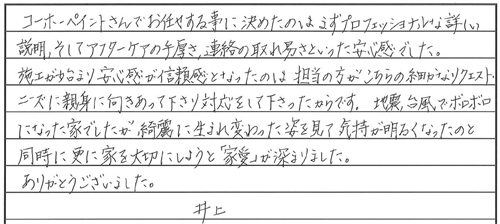 コーホーペイントさんでお任せする事に決めたのはまずプロフェッショナルな詳しい
説明、そしてアフターケアの手厚さ、連絡の取れ易さといった安心感でした。
施工が始まり安心感が信頼感となったのは担当の方がこちらの細かなリクエスト、
ニーズに親身に向きあって下さり対応をして下さったからです。地震、台風でボロボロ
になった家でしたが、綺麗に生まれ変わった姿を見て気持が明るくなったのと
同時に更に家を大切にしようと「家愛」が深まりました。
ありがとうございました。
井上